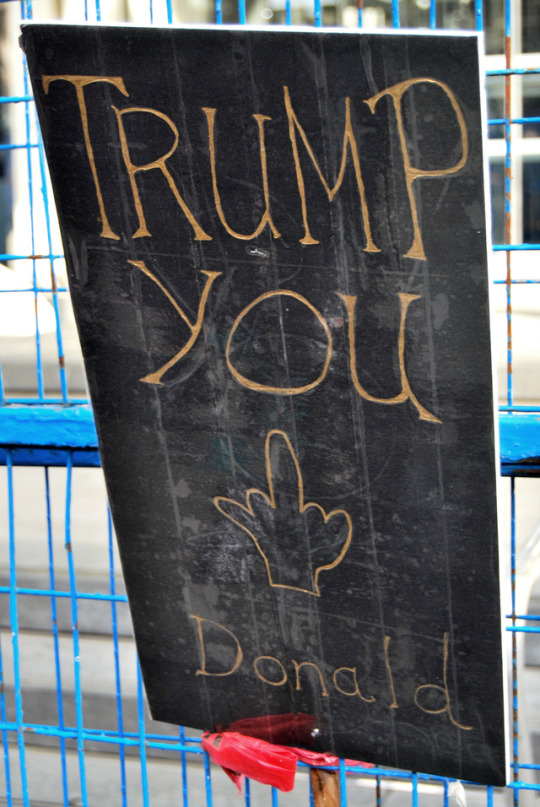 TRUMP
YOU
Donald